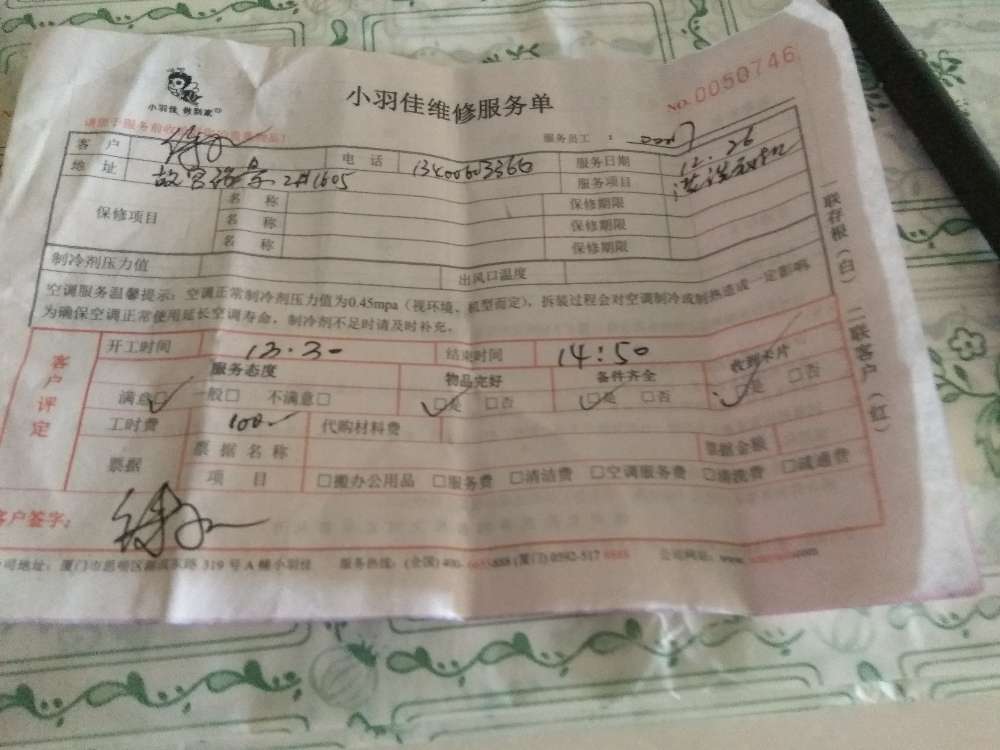 小羽佳 做到家
小羽佳维修服务单
NO. 0050746
服务员工：
客户
电话 服务日期 12.26
地址 2#1605 服务项目
保修项目 名称 保修期限
名称 保修期限
名称 保修期限
制冷剂压力值 出风口温度
空调服务温馨提示：空调正常制冷剂压力值为0.45mpa（视环境、机型而定），拆装过程会对空调制冷或制热造成一定影响
为确保空调正常使用延长空调寿命，制冷剂不足时请及时补充。
客户评定
开工时间 13.30 结束时间 14:50
服务态度 物品完好 备件齐全 收到卡片
满意□ 一般□ 不满意□ □是 □否 □是 □否 □是 □否
工时费 100 代购材料费
票据 票据名称 票据金额
项目 □搬办公用品 □服务费 □清洁费 □空调服务费 □清洗费 □疏通费
客户签字：
司地址：厦门市思明区 319号A幢小羽佳 服务热线：(全国)400- (厦门)0592-517 公司网址：www.
一联存根（白） 二联客户（红）